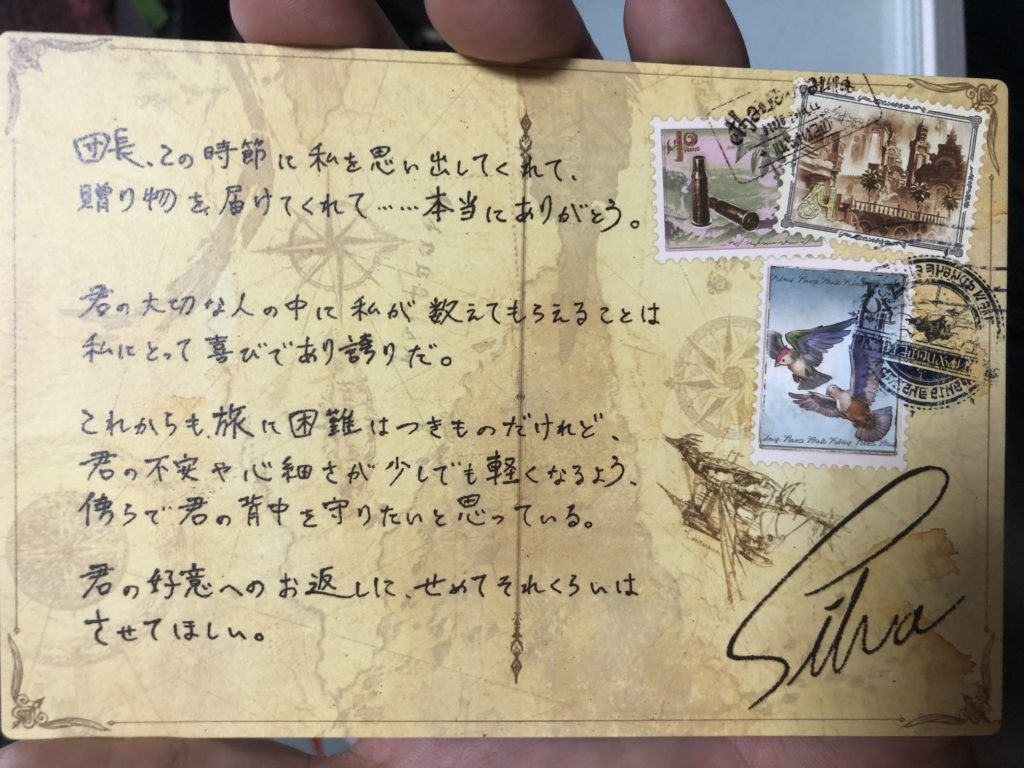 団長、この時節に私を思い出してくれて、
贈り物を届けてくれて……本当にありがとう。
君の大切な人の中に私が数えてもらえることは
私にとって喜びであり誇りだ。
これからも、旅に困難はつきものだけれど、
君の不安や心細さが少しでも軽くなるよう、
傍らで君の背中を守りたいと思っている。
君の好意へのお返しに、せめてそれくらいは
させてほしい。
Silva